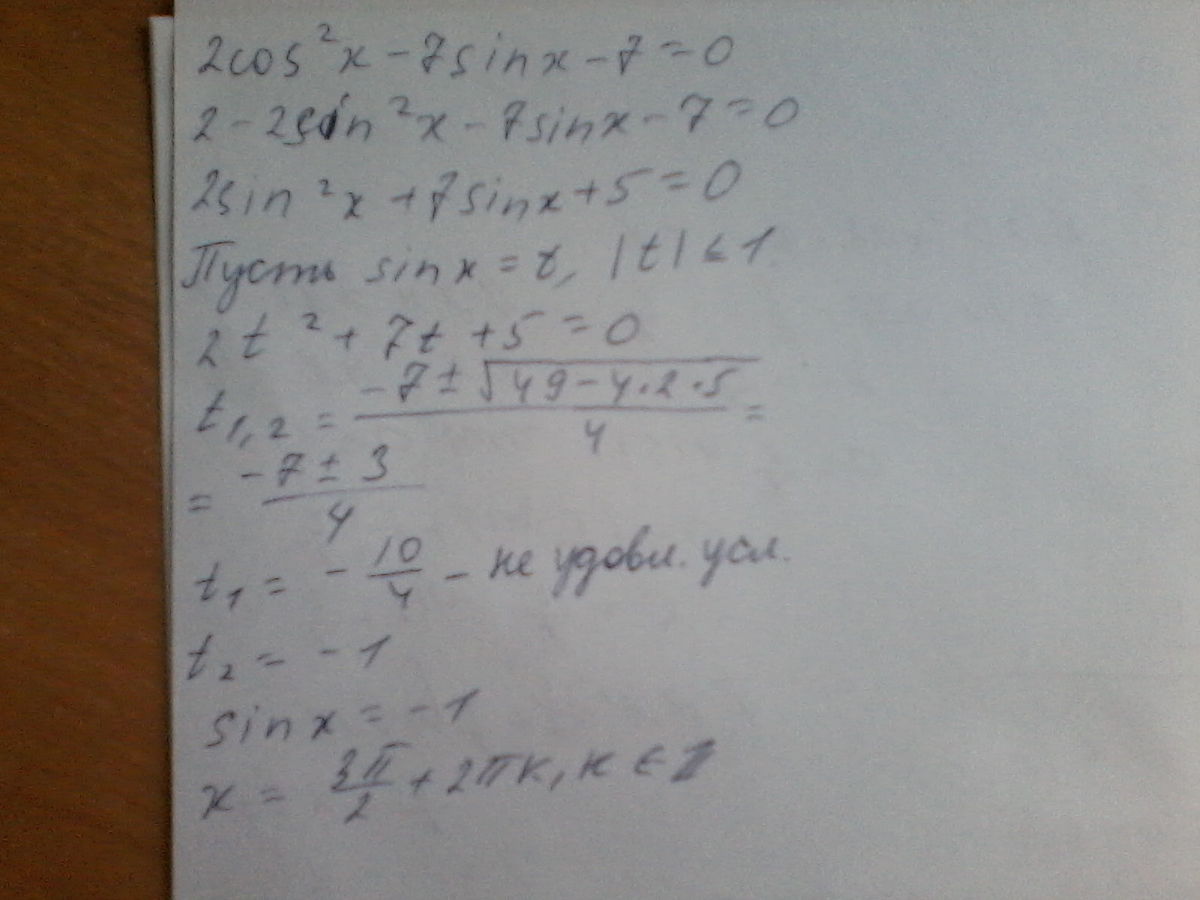 2cos²x - 7sinx - 7 = 0
2 - 2sin²x - 7sinx - 7 = 0
2sin²x + 7sinx + 5 = 0
Пусть sinx = t, |t| ≤ 1
2t² + 7t + 5 = 0
t₁,₂ = (-7 ± √(49 - 4·2·5))/4 =
= (-7 ± 3)/4
t₁ = -10/4 - не удовл. усл.
t₂ = -1
sinx = -1
x = 3π/2 + 2πк, к ∈ Z